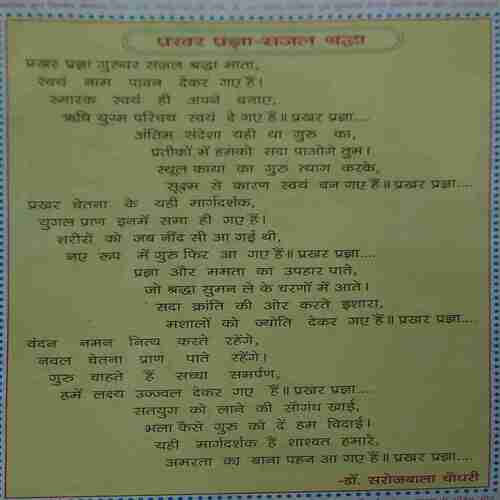 प्रखर प्रज्ञा-सजल श्रद्धा
प्रखर प्रज्ञा गुरुवर सजल श्रद्धा माता,
स्वयं नाम पावन देकर गए हैं।
स्मारक स्वयं ही अपने बनाए,
ऋषि युग्म परिचय स्वयं दे गए हैं॥ प्रखर प्रज्ञा....
अंतिम संदेशा यही था गुरु का,
प्रतीकों में हमको सदा पाओगे तुम।
स्थूल काया का गुरु त्याग करके,
सूक्ष्म से कारण स्वयं बन गए हैं॥ प्रखर प्रज्ञा....
प्रखर चेतना के यही मार्गदर्शक,
युगल प्राण इनमें समा ही गए हैं।
शरीरों को जब नींद सी आ गई थी,
नए रूप में गुरु फिर आ गए हैं॥ प्रखर प्रज्ञा....
प्रज्ञा और ममता का उपहार पाते,
जो श्रद्धा सुमन ले के चरणों में आते।
सदा क्रांति की ओर करते इशारा,
मशालों को ज्योति देकर गए हैं॥ प्रखर प्रज्ञा....
वंदन नमन नित्य करते रहेंगे,
नवल चेतना प्राण पाते रहेंगे।
गुरु चाहते हैं सच्चा समर्पण,
हमें लक्ष्य उज्ज्वल देकर गए हैं॥ प्रखर प्रज्ञा....
सतयुग को लाने की सौगंध खाई,
भला कैसे गुरु को दें हम विदाई।
यही मार्गदर्शक हैं शाश्वत हमारे,
अमरता का बाना पहन आ गए हैं॥ प्रखर प्रज्ञा....
-डॉ. सरोजबाला चौधरी